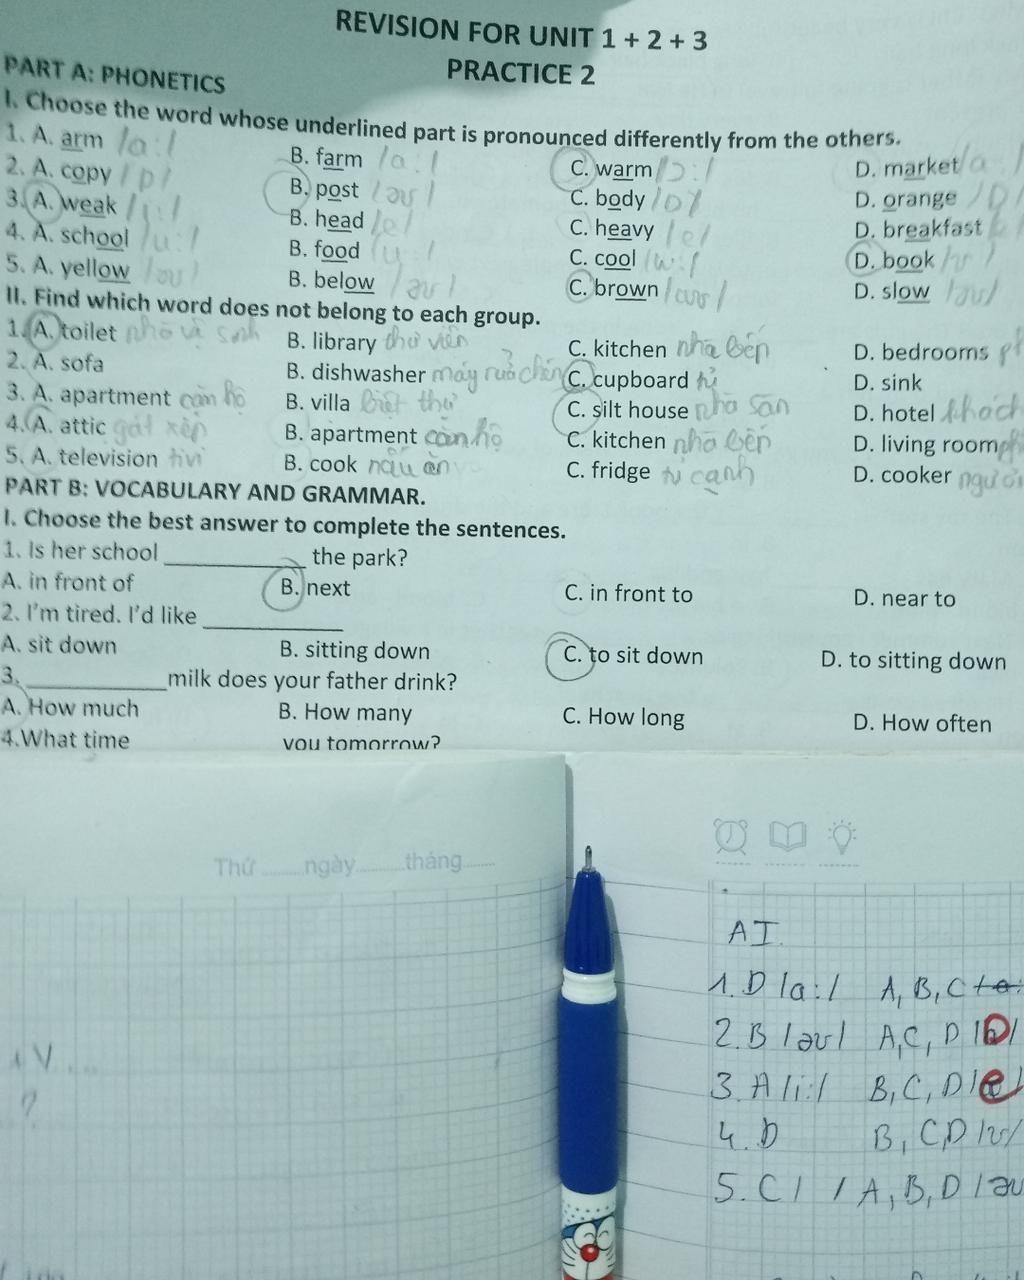 REVISION FOR UNIT 1 + 2 + 3
PRACTICE 2
PART A: PHONETICS
I. Choose the word whose underlined part is pronounced differently from the others.
1. A. arm /a:/ B. farm /a:/ C. warm /ɔ:/ D. market /a:/
2. A. copy /ɒ/ B. post /əʊ/ C. body /ɒ/ D. orange /ɒ/
3. A. weak /i:/ B. head /e/ C. heavy /e/ D. breakfast
4. A. school /u:/ B. food /u:/ C. cool /u:/ D. book /ʊ/
5. A. yellow /əʊ/ B. below /əʊ/ C. brown /aʊ/ D. slow /əʊ/
II. Find which word does not belong to each group.
1. A. toilet nhà vệ sinh B. library thư viện C. kitchen nhà bếp D. bedrooms
2. A. sofa B. dishwasher máy rửa chén C. cupboard tủ D. sink
3. A. apartment căn hộ B. villa biệt thự C. silt house nhà sàn D. hotel khách
4. A. attic gác xếp B. apartment căn hộ C. kitchen nhà bếp D. living room
5. A. television tivi B. cook nấu ăn C. fridge tủ lạnh D. cooker người
PART B: VOCABULARY AND GRAMMAR.
I. Choose the best answer to complete the sentences.
1. Is her school ____________ the park?
A. in front of B. next C. in front to D. near to
2. I'm tired. I'd like ____________
A. sit down B. sitting down C. to sit down D. to sitting down
3. ____________ milk does your father drink?
A. How much B. How many C. How long D. How often
4.What time you tomorrow?
Thứ ........ngày..........tháng.......
AI.
1. D /a:/ A, B, C
2. B /əʊ/ A, C, D /ɒ/
3. A /i:/ B, C, D /e/
4. D B, C, D /ʊ/
5. C / / A, B, D /əʊ